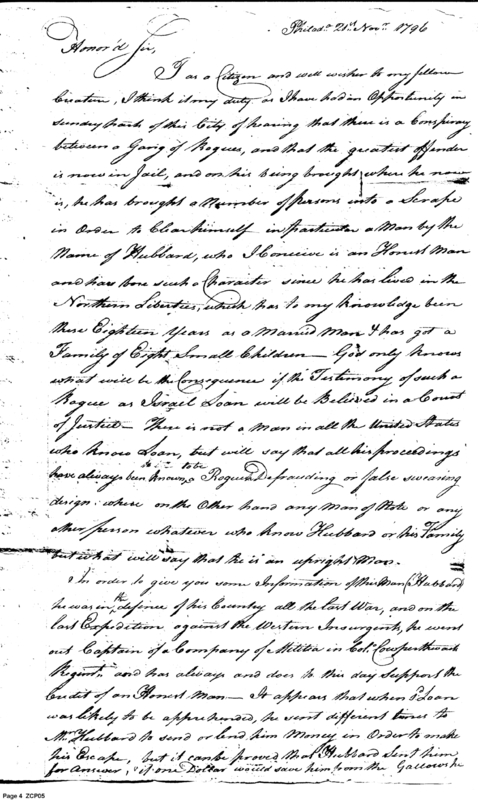 Philad.ª 21.st Nov.r 1796
Honor'd Sir,
I as a Citizen and well wisher to my fellow
Creature, I think it my duty as I have had an Opportunity in
sundry parts of this City of hearing that there is a Conspiracy
between a Gang of Rogues, and that the greatest offender
is now in Jail, and on his being brought where he now
is, he has brought a Number of persons into a Scrape
in Order to Clear himself in particular a Man by the
Name of Hubbard, who I Conceive is an Honest Man
and has bore such a Character since he has lived in the
Northern Liberties, which has to my knowledge been
these Eighteen Years as a Married Man & has got a
Family of Eight Small Children — God only knows
what will be the Consequence if the Testimony of such a
Rogue as Israel Loan will be Believed in a Court
of Justice — There is not a Man in all the United States
who know Loan, but will say that all his proceedings
have always been known to be a Rogue Defrauding or false swearing
design: where on the Other hand any Man of Note or any
other person whatever who know Hubbard or his Family
but what will say that he is an upright Man.
In order to give you some Information of this Man (Hubbard)
he was in the defence of his Country all the last War, and on the
last Expedition against the Western Insurgents, he went
out Captain of a Company of Militia in Col.º Cowperthwait
Regim.t and has always and does to this day support the
Credit of an Honest Man — It appears that when Loan
was likely to be apprehended, he sent different times to
M.r Hubbard to send or lend him Money in Order to make
his Escape, but it can be proved that Hubbard Sent him
for Answer, if one Dollar would save him from the Gallows he
Page 4 ZCP05